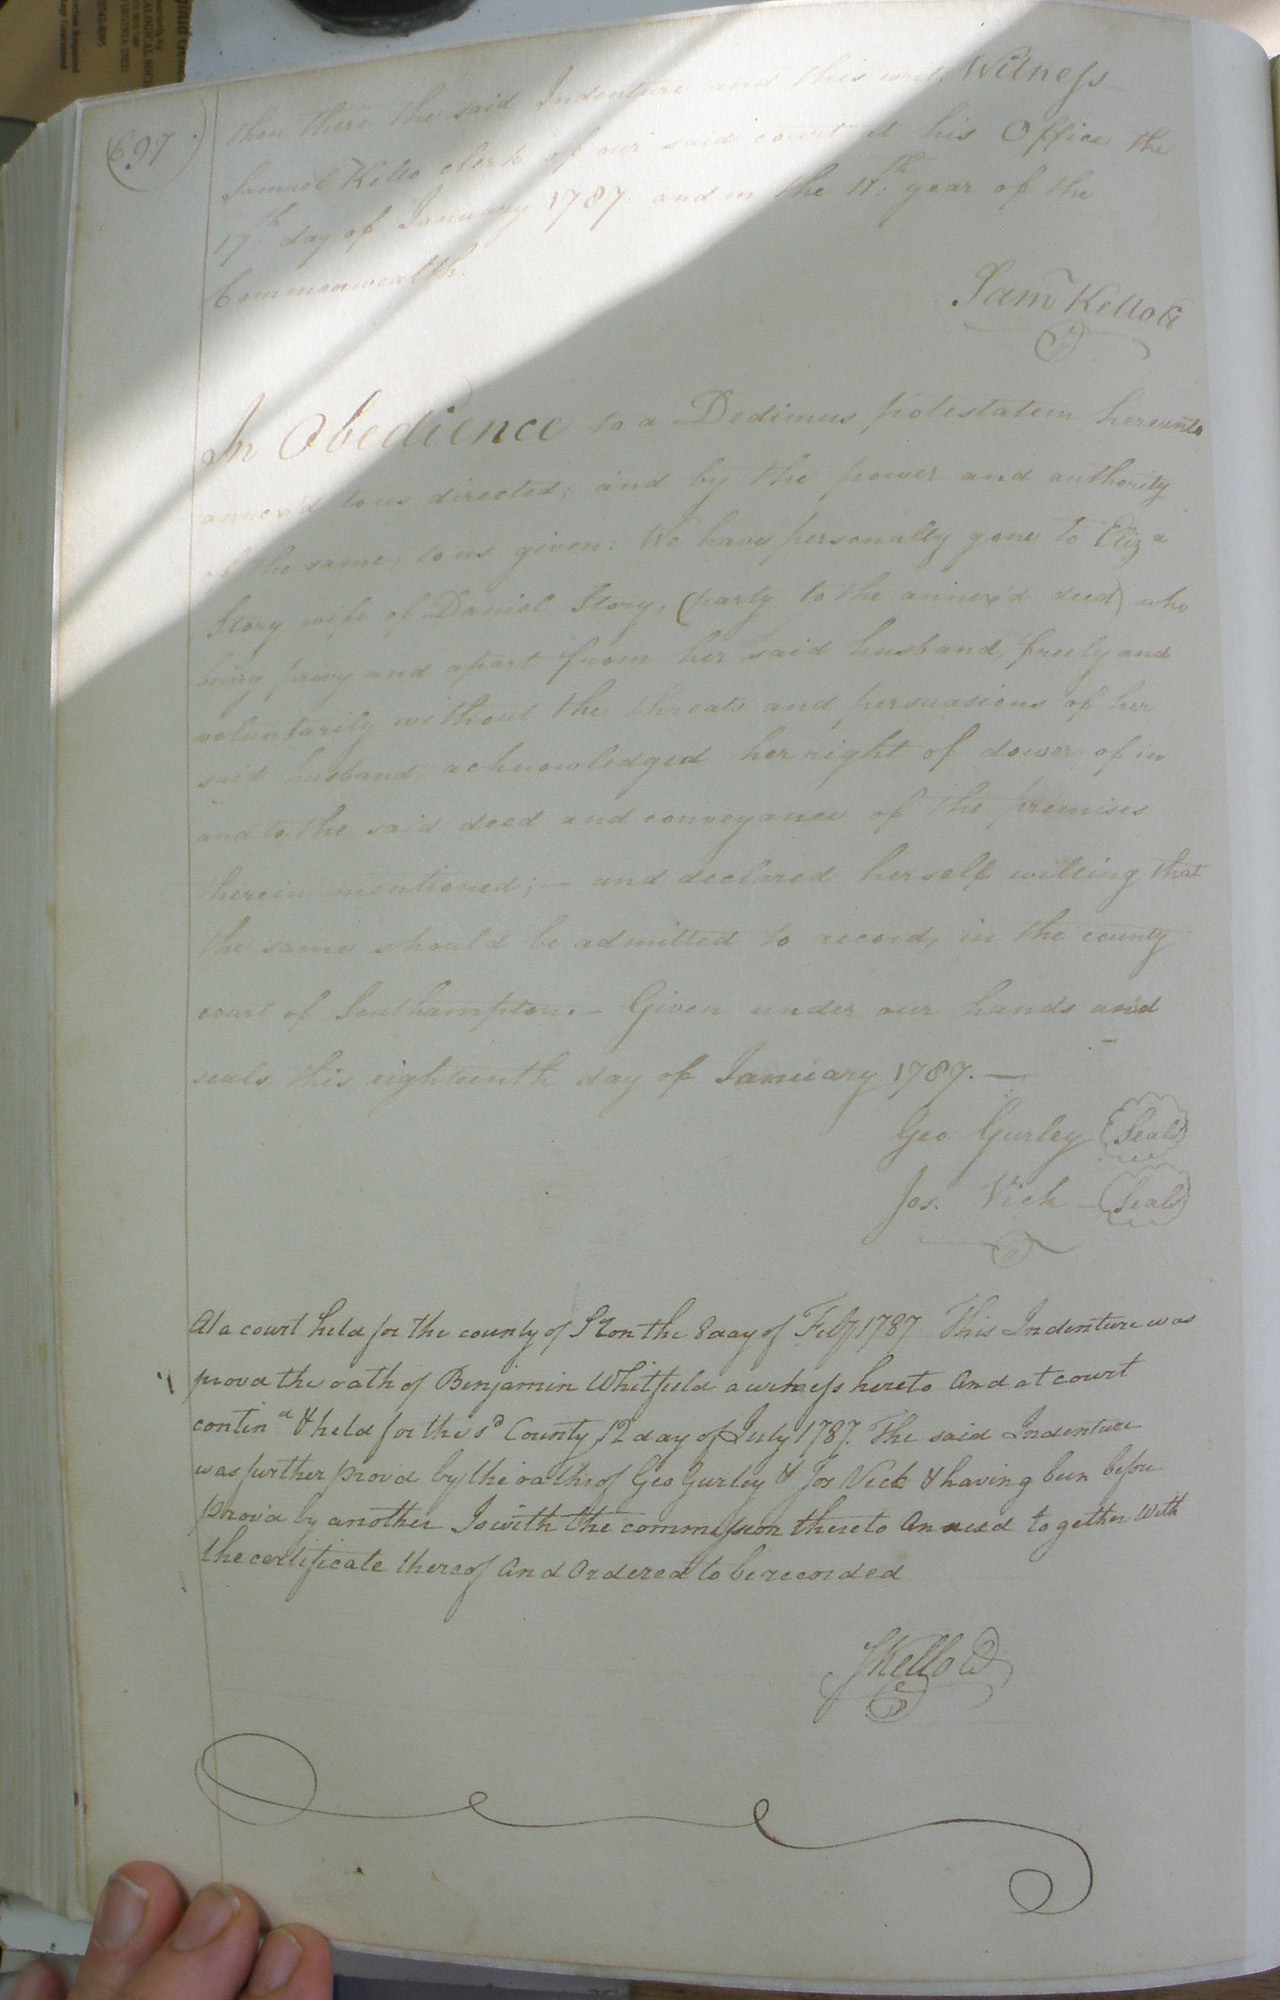 697
then there the said Indenture and this writ. Witness
Samuel Kello clerk of our said court at his Office the
17th day of January 1787. and in the 11th year of the
Commonwealth.
Sam Kello Cl
In Obedience to a Dedimus potestatem hereunto
annex'd to us directed; and by the power and authority
of the same, to us given: We have personally gone to Eliza
Story wife of Daniel Story, (party to the annex'd deed) who
being privy and apart from her said husband, freely and
voluntarily without the threats and persuasions of her
said husband, acknowledged her right of dower of in
and to the said deed and conveyance of the premises
therein mentioned; — and declared herself willing that
the same should be admitted to record, in the county
court of Southampton. — Given under our hands and
seals this eighteenth day of January 1787. —
Geo. Gurley (Seal)
Jos. Vick — (Seal)
At a court held for the county of Ston the 8 day of Feby 1787 This Indenture was
provd the oath of Benjamin Whitfield a witness hereto And at court
contind & held for the sd County 12 day of July 1787. The said Indenture
was further provd by the oaths of Geo Gurley & Jos Vick & having been before
provd by another Is with the commission thereto Annexd together With
the certificate thereof And Ordered to be recorded
SKello Cl